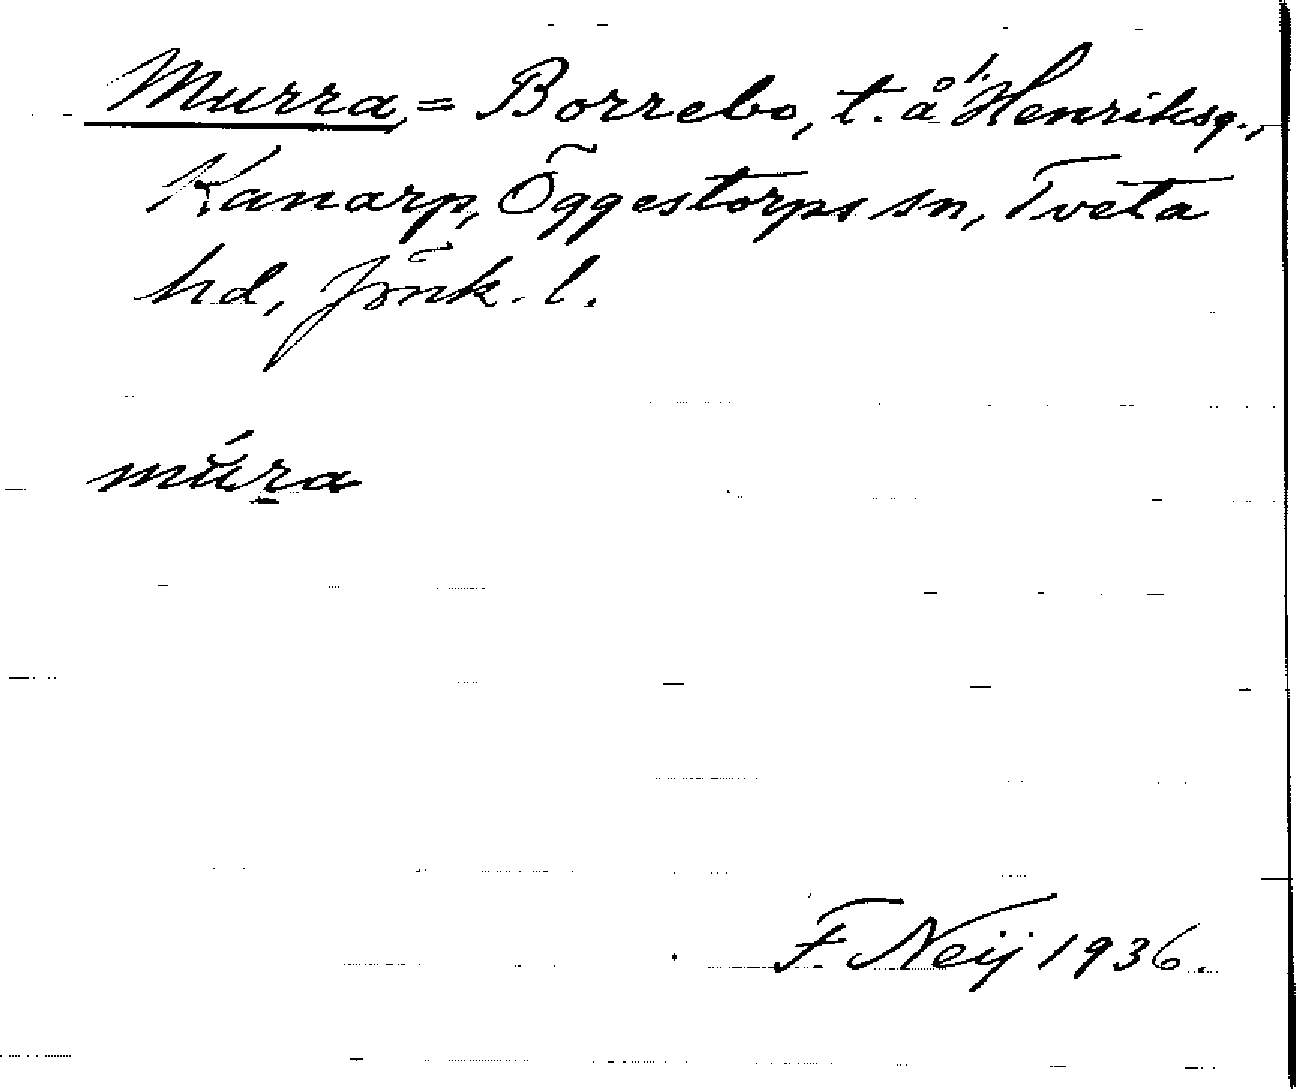 Murra, = Borrebo, t. å Henriksg.,
Kanarp, Öggestorps sn, Tveta
hd, Jönk. l.
mŭ́ṟa
F. Neij 1936.